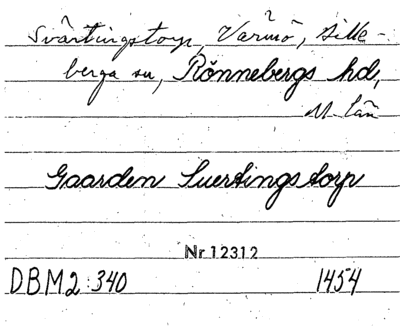 Svärtingstorp, Värmö, Sille-
berga sn, Rönnebergs hd,
M län
Gaarden Suertingstorp
Nr 12312
DBM2:340 1454